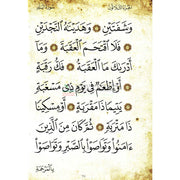 وَشَفَتَيْنِ ۝ وَهَدَيْنَٰهُ ٱلنَّجْدَيْنِ
۝ فَلَا ٱقْتَحَمَ ٱلْعَقَبَةَ ۝ وَمَآ
أَدْرَىٰكَ مَا ٱلْعَقَبَةُ ۝ فَكُّ رَقَبَةٍ
۝ أَوْ إِطْعَٰمٌ فِى يَوْمٍ ذِى مَسْغَبَةٍ
۝ يَتِيمًا ذَا مَقْرَبَةٍ ۝ أَوْ مِسْكِينًا
ذَا مَتْرَبَةٍ ۝ ثُمَّ كَانَ مِنَ ٱلَّذِينَ
ءَامَنُوا۟ وَتَوَاصَوْا۟ بِٱلصَّبْرِ وَتَوَاصَوْا۟
بِٱلْمَرْحَمَةِ